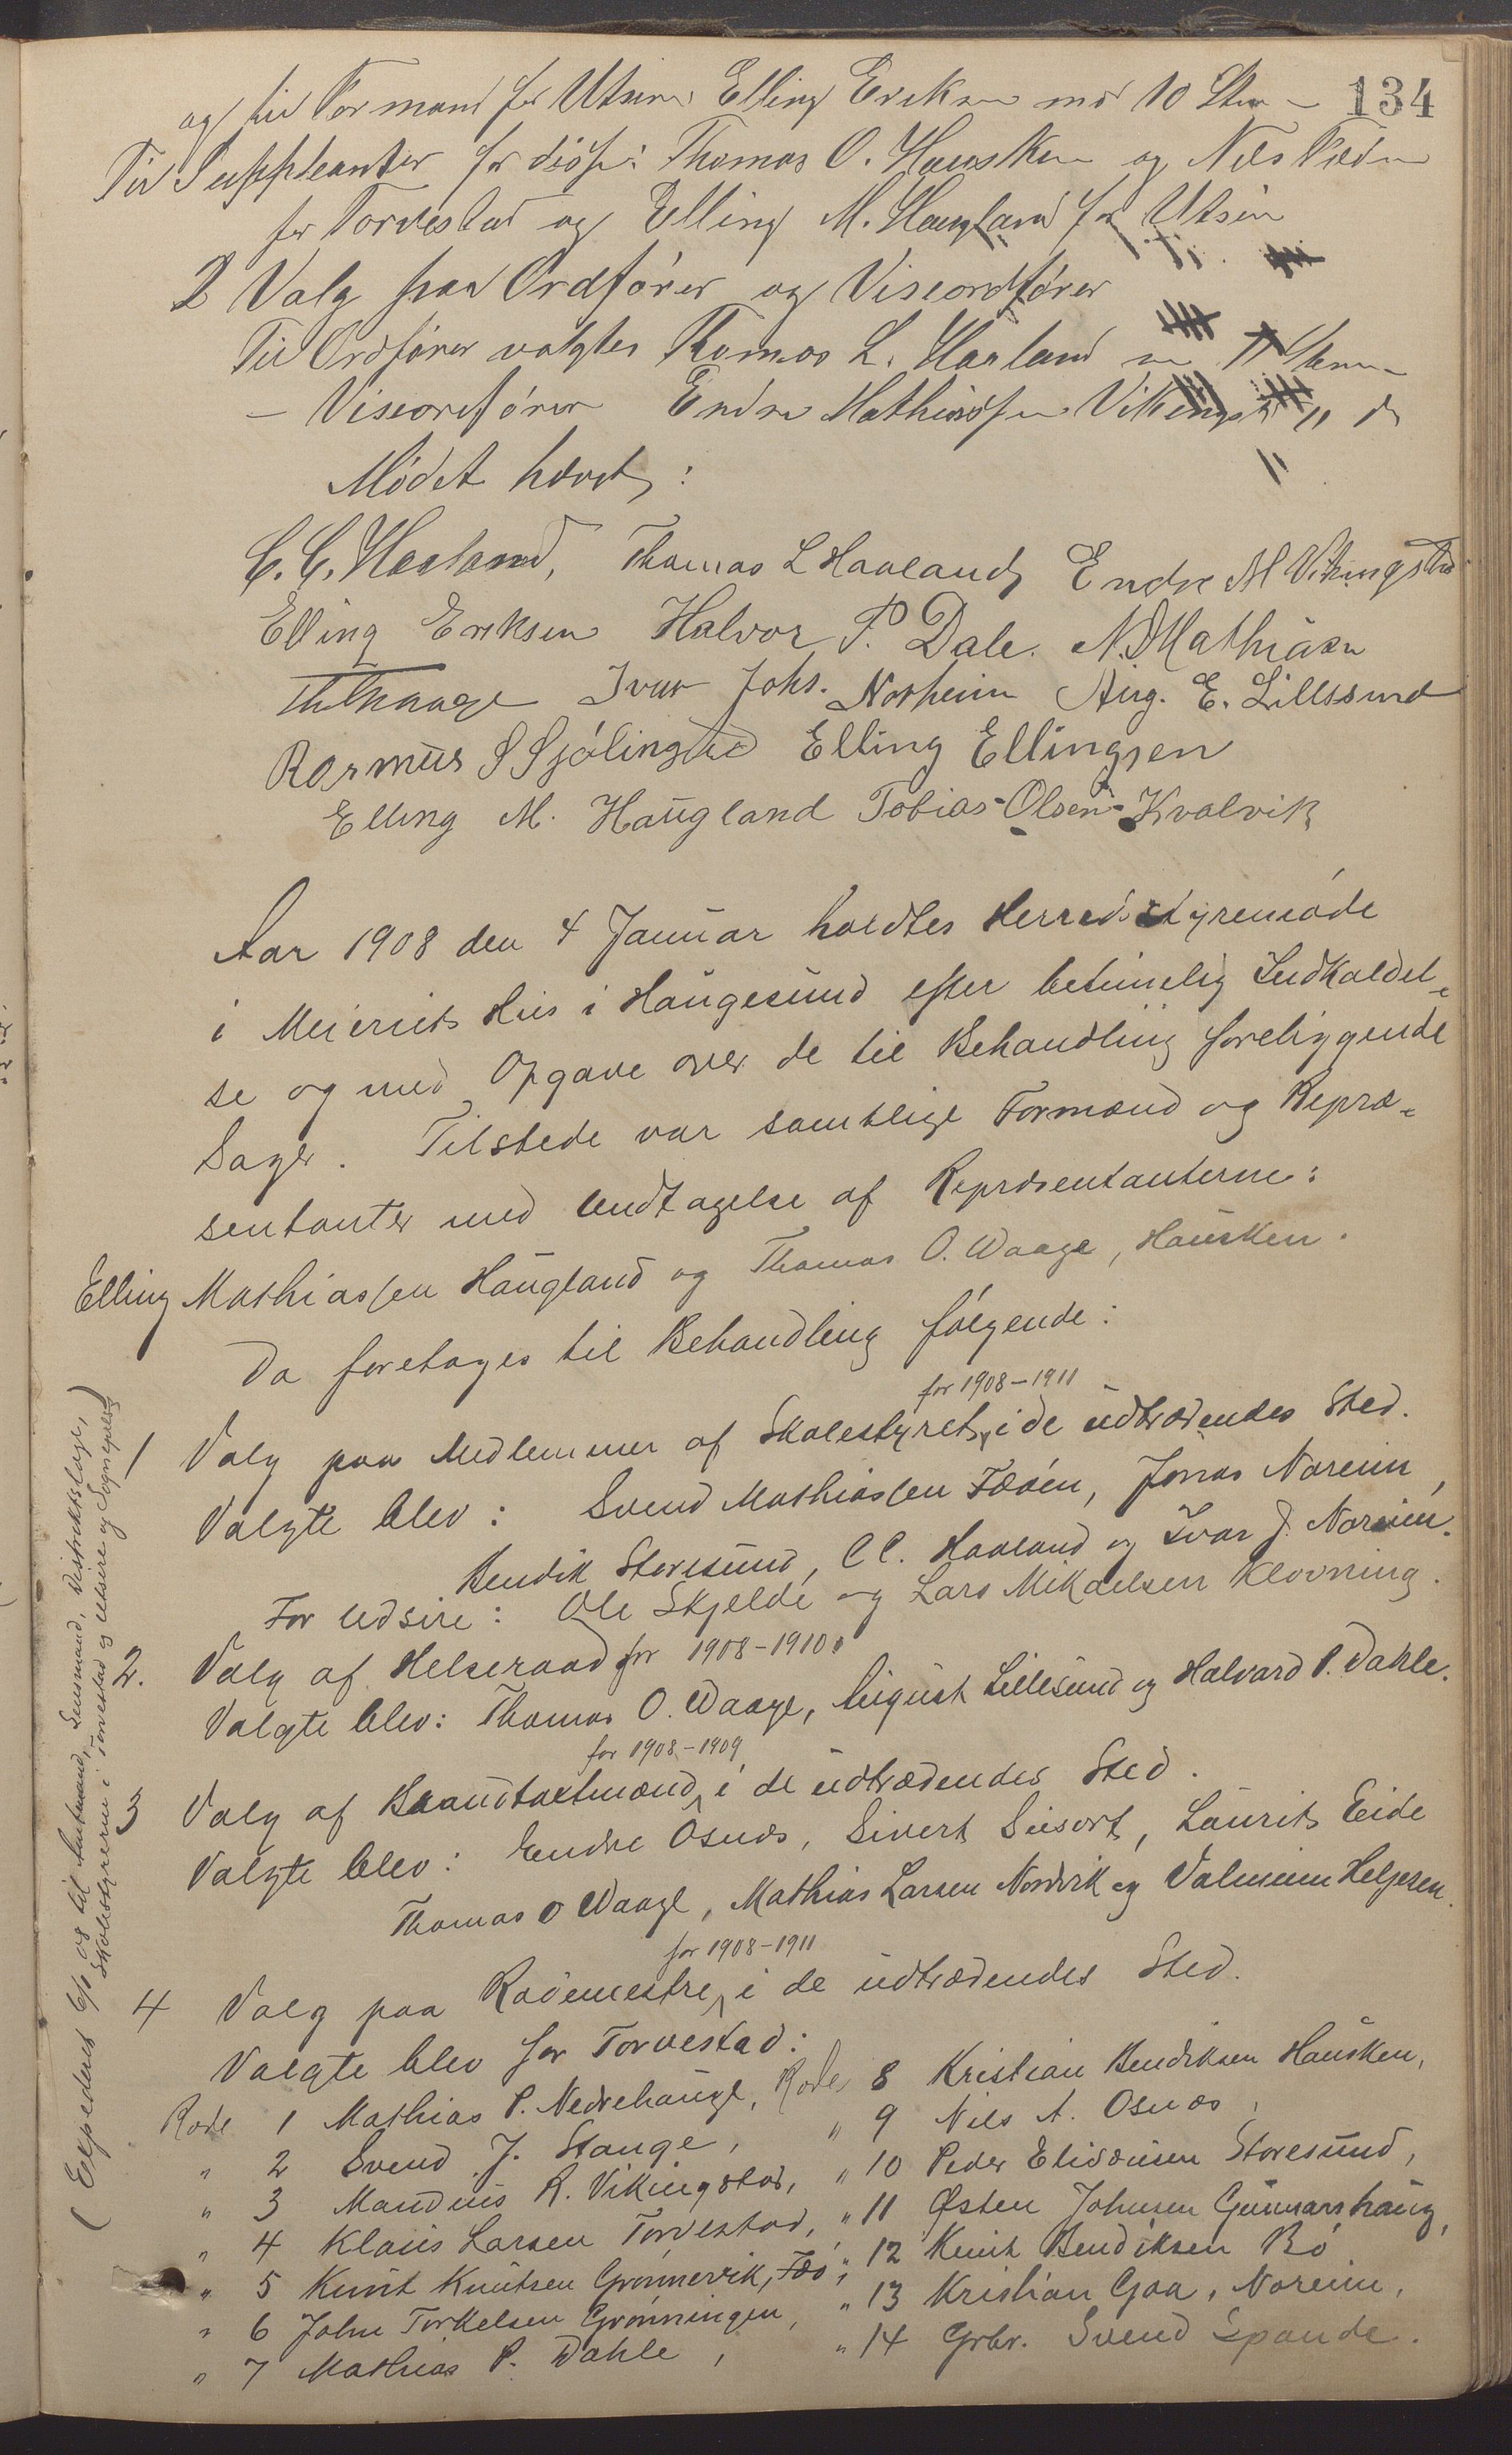 134
og til Formand for Utsire Elling Eriksen med 10 St
Til Suppleanter for disse: Thomas O. Hausken og Nils
for Torvestad og Elling M. Haugland for Utsire
2 Valg paa Ordfører og Viseordfører
Til Ordfører valgtes Thomas L. Haaland
— Viseordfører Endre Mathiassen Vikingst 11 d
Mødet hævet:
C. C. Haaland, Thomas L Haaland, Endre M Vikingstad
Elling Eriksen Halvor P. Dale. N. Mathiasen
Ivar Johs. Norheim Aug. E. Lillesund
Rasmus S Elling Ellingsen
Elling M. Haugland Tobias Olsen Kvalvik
Aar 1908 den 4 Januar holdtes Herredsstyremøde
i Meieriets Hus i Haugesund efter betimelig Indkaldel-
se og med Opgave over de til Behandling foreliggende
Sager. Tilstede var samtlige Formænd og Repræ-
sentanter med Undtagelse af Repræsentanterne:
Elling Mathiassen Haugland og Thomas O. Waage, Hausken.
Da foretoges til Behandling følgende:
for 1908-1911
1 Valg paa Medlemmer af Skolestyret, i de udtrædendes Sted.
Valgte blev: Svend Mathiassen Fæøen, Jonas Noreim,
Bendik Storesund, C C. Haaland og Ivar J. Noreim.
For Udsire: Ole Skjelde og Lars Mikaelsen Klovning.
2. Valg af Helseraad for 1908-1910.
Valgte blev: Thomas O. Waage, August Lillesund og Halvard P. Dahle.
for 1908-1909
3 Valg af Brandtaxtmænd, i de udtrædendes Sted.
Valgte blev: Endre Osnæs, Sivert Liisort, Laurits Eide
Thomas O Waage, Mathias Larsen Nordvik og Valmuen Helgesen.
for 1908-1911
4 Valg paa Rodemestre, i de udtrædendes Sted.
Valgte blev for Torvestad:
Rode 1 Mathias P. Nedrehauge, Rode 8 Kristian Bendiksen Hausken,
" 2 Svend J. Stange, " 9 Nils A. Osnæs,
" 3 Mandius R. Vikingstad, " 10 Peder Elisæusen Storesund,
" 4 Klaus Larsen Torvestad, " 11 Østen Johnsen Gunnarshaug,
" 5 Knut Knutsen Grønnevik, Fæø, " 12 Knut Bendiksen Bø
" 6 John Torkelsen Grønningen, " 13 Kristian Gaa, Noreim,
" 7 Mathias P. Dahle, " 14 Grbr. Svend Spande.
(Expederet 6/1 08 til Amtmand, Lensmand, Distriktslæge,
Skolestyrerne i Torvestad og Utsire og Sogneprest)